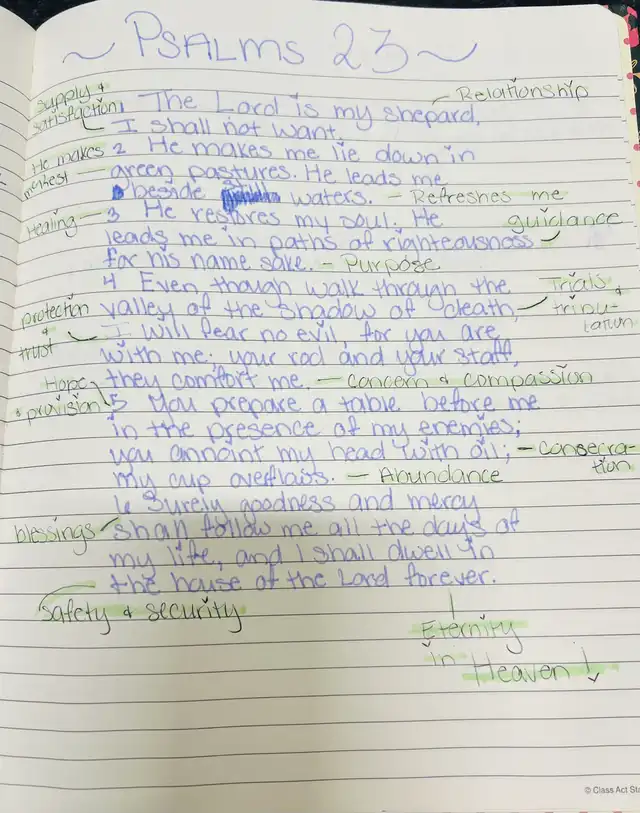 ~ PSALMS 23 ~
supply &
satisfaction
1 The Lord is my shepard, - Relationship
I shall not want.
He makes
me rest
2 He makes me lie down in
green pastures. He leads me
beside waters. - Refreshes me
Healing - 3 He restores my soul. He guidance
leads me in paths of righteousness
for his name sake. - Purpose
4 Even though walk through the Trials &
valley of the shadow of death, - tribu-
lation
protection
&
trust
I will fear no evil, for you are
with me; your rod and your staff,
they comfort me. - concern & compassion
Hope
& provision
5 You prepare a table before me
in the presence of my enemies;
you annoint my head with oil; - consecra-
tion
my cup overflows. - Abundance
6 Surely goodness and mercy
blessings shall follow me all the days of
my life, and I shall dwell in
the house of the Lord forever.
safety & security
Eternity
in Heaven!
© Class Act Sta